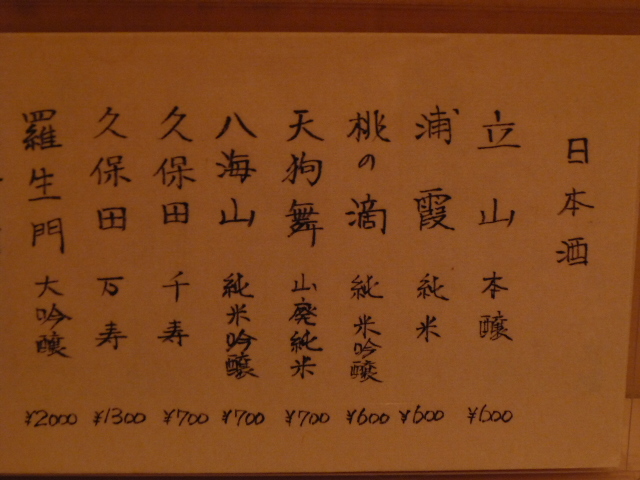 日本酒
立山 本醸 ¥600
浦霞 純米 ¥600
桃の滴 純米吟醸 ¥600
天狗舞 山廃純米 ¥700
八海山 純米吟醸 ¥700
久保田 千寿 ¥700
久保田 万寿 ¥1300
羅生門 大吟醸 ¥2000